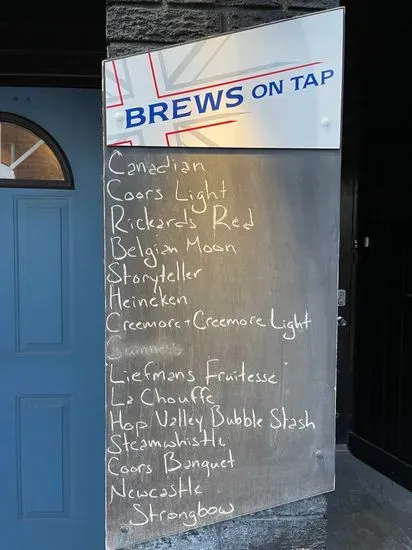 BREWS ON TAP
Canadian
Coors Light
Rickards Red
Belgian Moon
Storyteller
Heineken
Creemore + Creemore Light
Guinness
Liefmans Fruitesse
La Chouffe
Hop Valley Bubble Stash
Steamwhistle
Coors Banquet
Newcastle
Strongbow